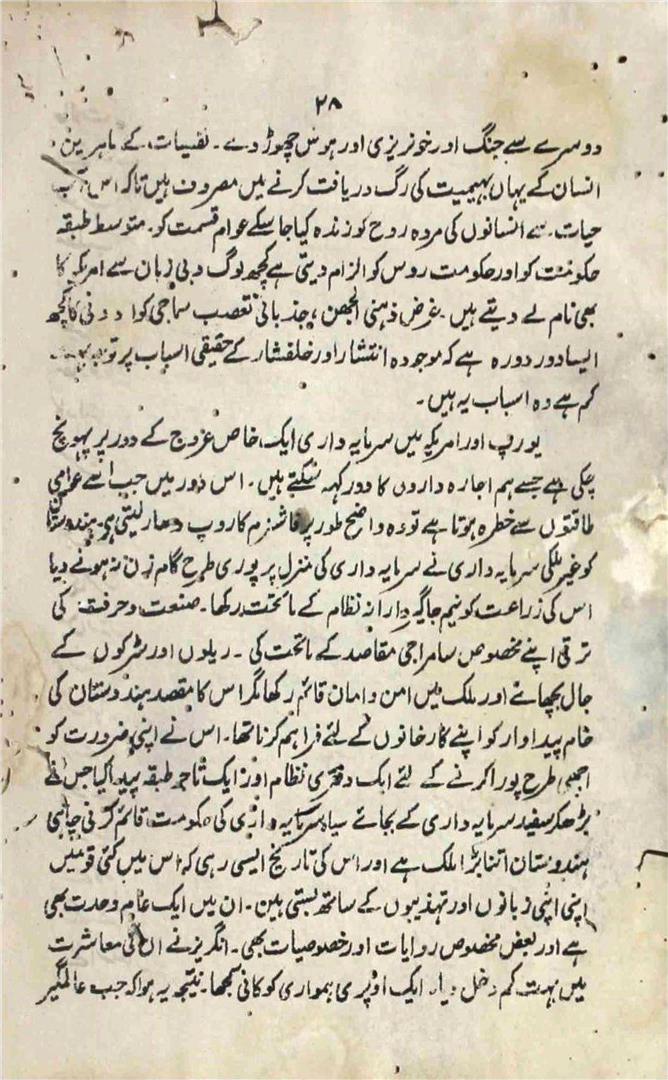 ۲۸
دوسرے سے جنگ اور خونریزی اور ہوس چھوڑ دے ۔ نفسیات کے ماہرین
انسان کے یہاں بہیمیت کی رگ دریافت کرنے میں مصروف ہیں تاکہ اس آب
حیات سے انسانوں کی مردہ روح کو زندہ کیا جا سکے عوام قسمت کو ۔ متوسط طبقہ
حکومت کو اور حکومت روس کو الزام دیتی ہے کچھ لوگ دبی زبان سے امریکہ کا
بھی نام لے دیتے ہیں ۔ غرض ذہنی الجھن ، جذباتی تعصب سماجی کا کچھ
ایسا دور دورہ ہے کہ موجودہ انتشار اور خلفشار کے حقیقی اسباب پر توجہ بہت
کم ہے وہ اسباب یہ ہیں ۔
یورپ اور امریکہ میں سرمایہ داری ایک خاص عروج کے دور پر پہونچ
چکی ہے جسے ہم اجارہ داروں کا دور کہہ سکتے ہیں ۔ اس دور میں جب اسے عوامی
طاقتوں سے خطرہ ہوتا ہے تو وہ واضح طور پر فاشزم کا روپ دھار لیتی ہے ۔ ہندوستان
کو غیر ملکی سرمایہ داری نے سرمایہ داری کی منزل پر پوری طرح گام زن نہ ہونے دیا
اس کی زراعت کو نیم جاگیردارانہ نظام کے ماتحت رکھا ۔ صنعت و حرفت کی
ترقی اپنے مخصوص سامراجی مقاصد کے ماتحت کی ۔ ریلوں اور سڑکوں کے
جال بچھائے اور ملک میں امن و امان قائم رکھا مگر اس کا مقصد ہندوستان کی
خام پیداوار کو اپنے کارخانوں کے لئے فراہم کرنا تھا ۔ اس نے اپنی ضرورت کو
اچھی طرح پورا کرنے کے لئے ایک دفتری نظام اور ایک تاجر طبقہ پیدا کیا جس نے
بڑھکر سفید سرمایہ داری کے بجائے سیاہ سرمایہ داری کی حکومت قائم کرنی چاہی
ہندوستان اتنا بڑا ملک ہے اور اس کی تاریخ ایسی رہی کہ اس میں کئی قومیں
اپنی اپنی زبانوں اور تہذیبوں کے ساتھ بستی ہیں ۔ ان میں ایک عام وحدت بھی
ہے اور بعض مخصوص روایات اور خصوصیات بھی ۔ انگریز نے ان کی معاشرت
میں بہت کم دخل دیا ۔ ایک اوپری ہمواری کو کافی سمجھا ۔ نتیجہ یہ ہوا کہ جب عالمگیر